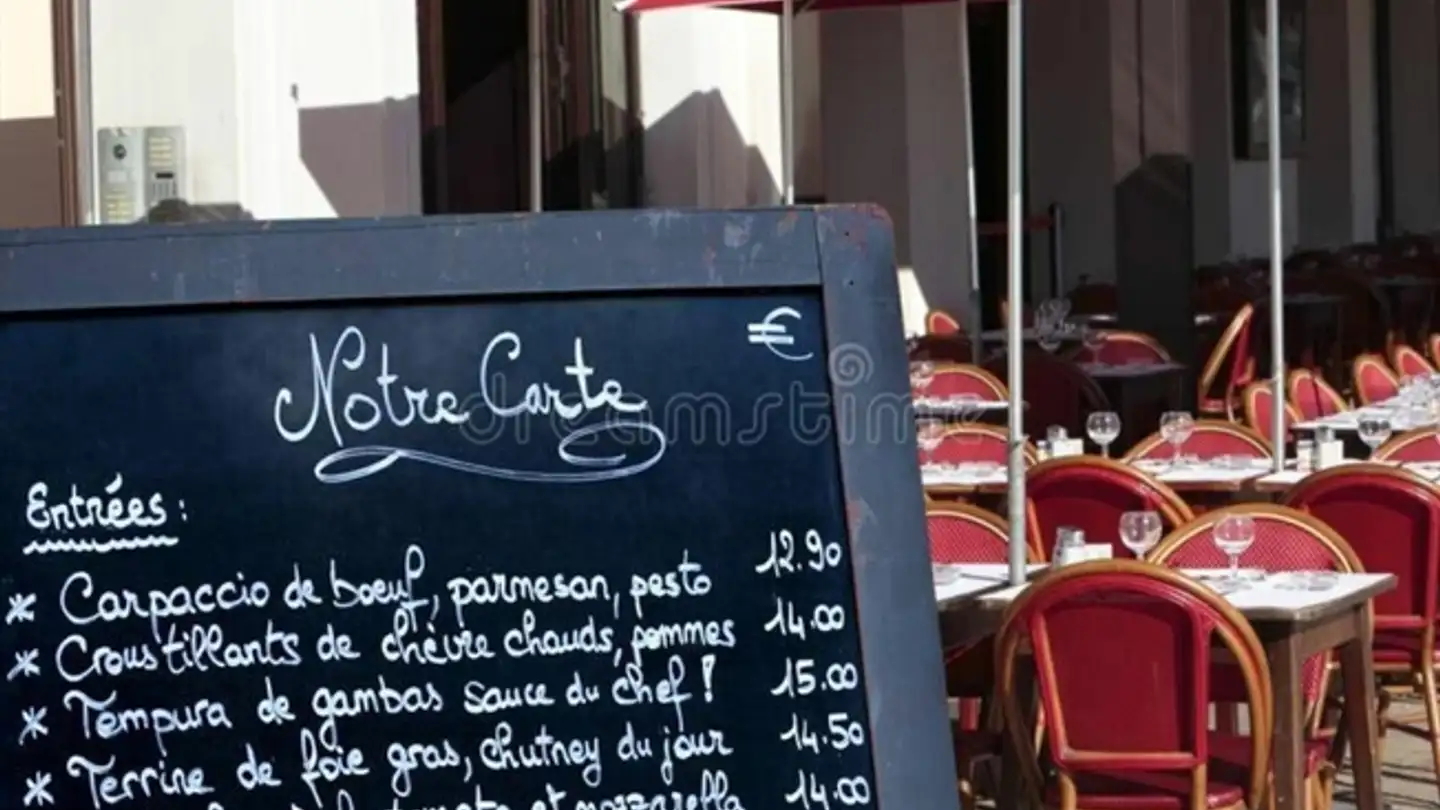 Notre Carte €
Entrées :
* Carpaccio de boeuf, parmesan, pesto 12.90
* Croustillants de chèvre chauds, pommes 14.00
* Tempura de gambas sauce du chef ! 15.00
* Terrine de foie gras, chutney du jour 14.50
tomate et mozzarella 14.00
dreamstime